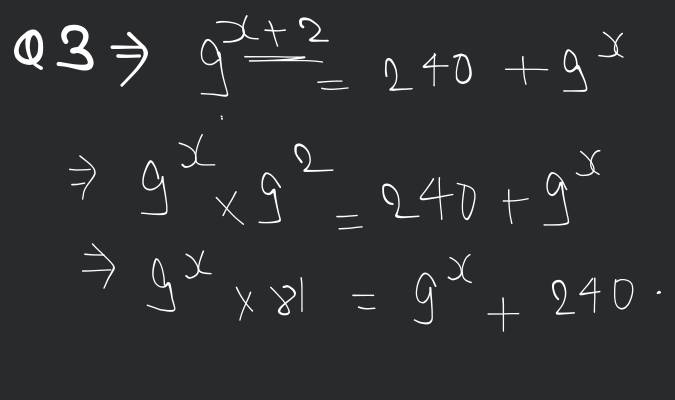 Q3 ⇒ 9^{x+2} = 240 + 9^x
⇒ 9^x × 9^2 = 240 + 9^x
⇒ 9^x × 81 = 9^x + 240.